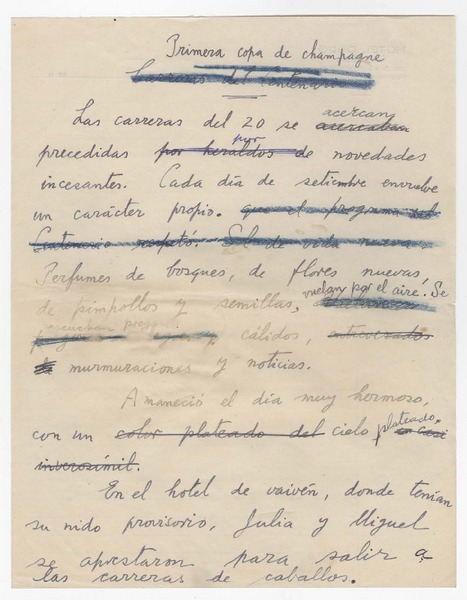 Primera copa de champagne
Carreras del Centenario
Las carreras del 20 se acercan acercaban
precedidas por heraldos de por novedades
incesantes. Cada día de setiembre envuelve
un carácter propio. que el programa del
Centenario respetó. Sol de vida nueva.
Perfumes de bosques, de flores nuevas,
de pimpollos y semillas, vuelan por el aire. Se
escuchan cálidos,
murmuraciones y noticias.
Amaneció el día muy hermoso,
con un color plateado del cielo plateado. casi
inverosímil.
En el hotel de vaivén, donde tenían
su nido provisorio, Julia y Miguel
se aprestaron para salir a
las carreras de caballos.